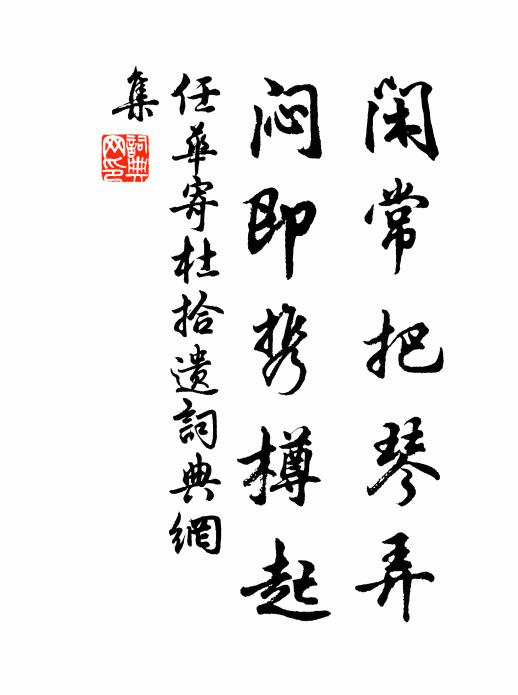 闲常把琴弄
闷即携樽起
任華寄杜拾遗詞典網
集
詞典网印